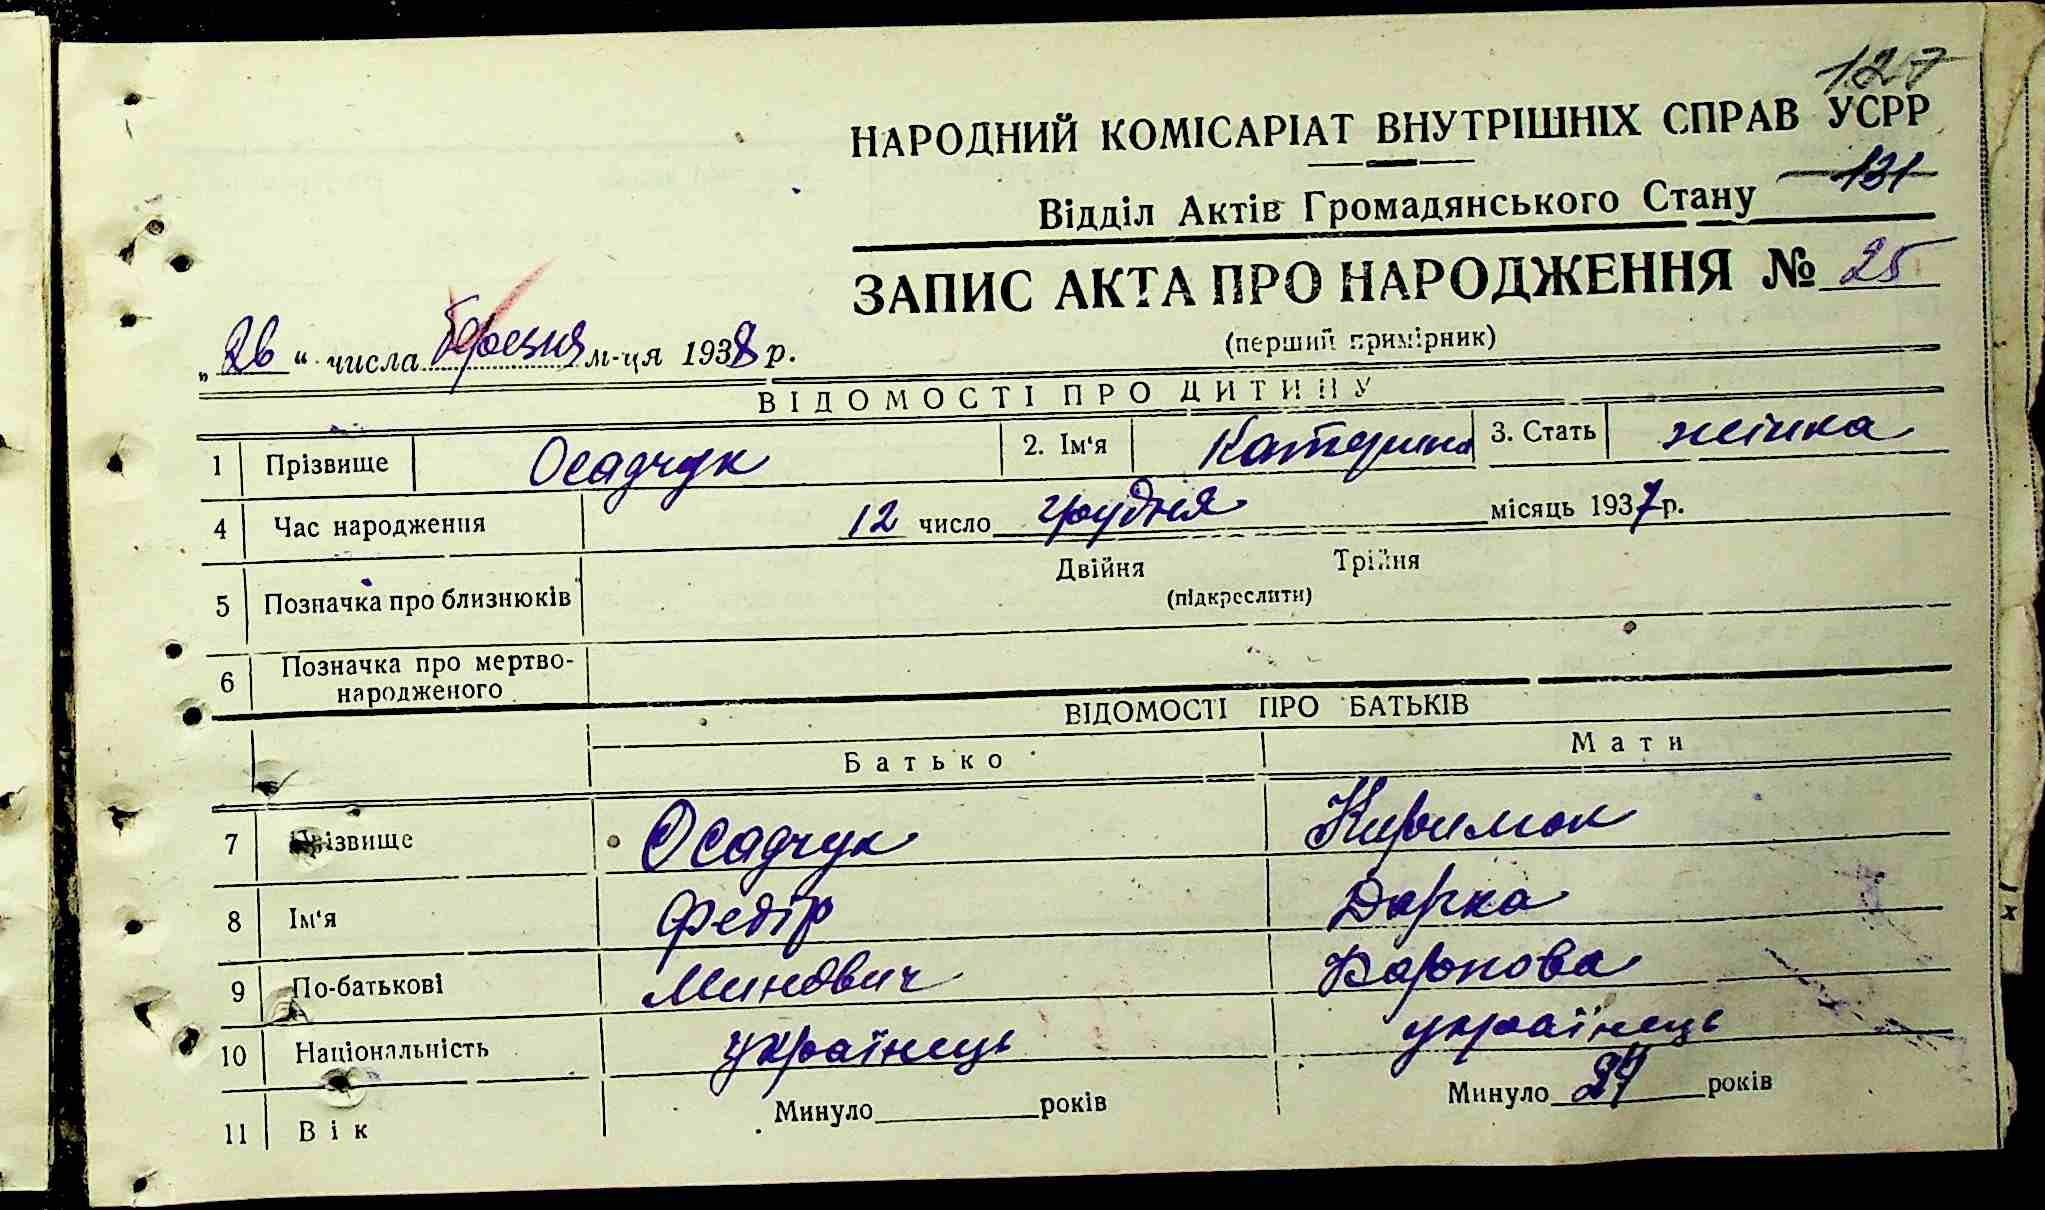 127
НАРОДНИЙ КОМІСАРІАТ ВНУТРІШНІХ СПРАВ УСРР
Відділ Актів Громадянського Стану 131
ЗАПИС АКТА ПРО НАРОДЖЕННЯ № 25
(перший примірник)
„26“ числа березня м-ця 1938 р.
ВІДОМОСТІ ПРО ДИТИНУ
1 Прізвище Осадчук 2. Ім‘я Катерина 3. Стать жінка
4 Час народження 12 число грудня місяць 1937 р.
5 Позначка про близнюків Двійня Трійня
(підкреслити)
6 Позначка про мертво-
народженого
ВІДОМОСТІ ПРО БАТЬКІВ
Батько Мати
7 Прізвище Осадчук
8 Ім‘я Федір Дарка
9 По-батькові
10 Національність українець українець
11 Вік Минуло років Минуло років